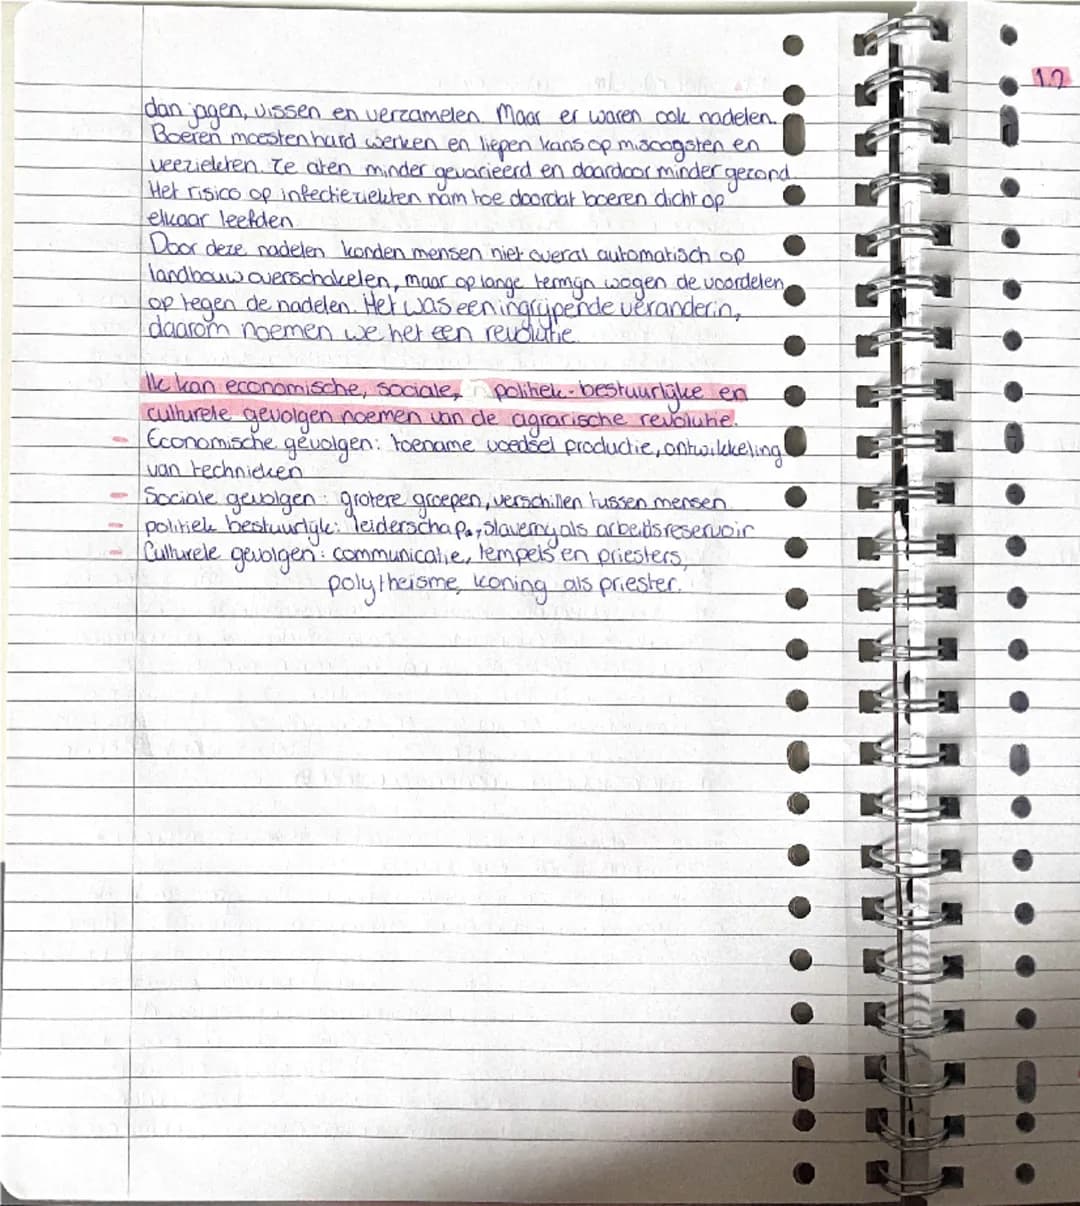 1.2
dan jagen, vissen en verzamelen. Maar er waren ook nadelen.
Boeren moesten hard werken en liepen kans op misoogsten en
veeziekten. Ze aten minder gevarieerd en daardoor minder gezond.
Het risico op infectieziekten nam toe doordat boeren dicht op
elkaar leefden.
Door deze nadelen konden mensen niet overal automatisch op
landbouw overschakelen, maar op lange termijn wogen de voordelen
op tegen de nadelen. Het was een ingrijpende veranderin,
daarom noemen we het een revolutie.
Ik kan economische, sociale, politiek-bestuurlijke en
culturele gevolgen noemen van de agrarische revolutie.
- Economische gevolgen: toename voedsel productie, ontwikkeling
van technieken
- Sociale gevolgen: grotere groepen, verschillen tussen mensen.
- politiek bestuurlijk: leiderschap, slavernij als arbeidsreservoir
- Culturele gevolgen: communicatie, tempels en priesters,
polytheisme, koning als priester.